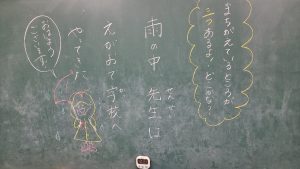 まちがえているところが
三つあるよ！どこかな？
雨の中 先生は
えがおで字校へ
やってきた
おはよう
ございます。